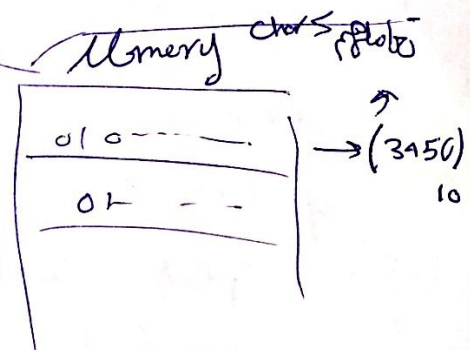 Memory chars
010-----.
→(3450)
10
01 - - -